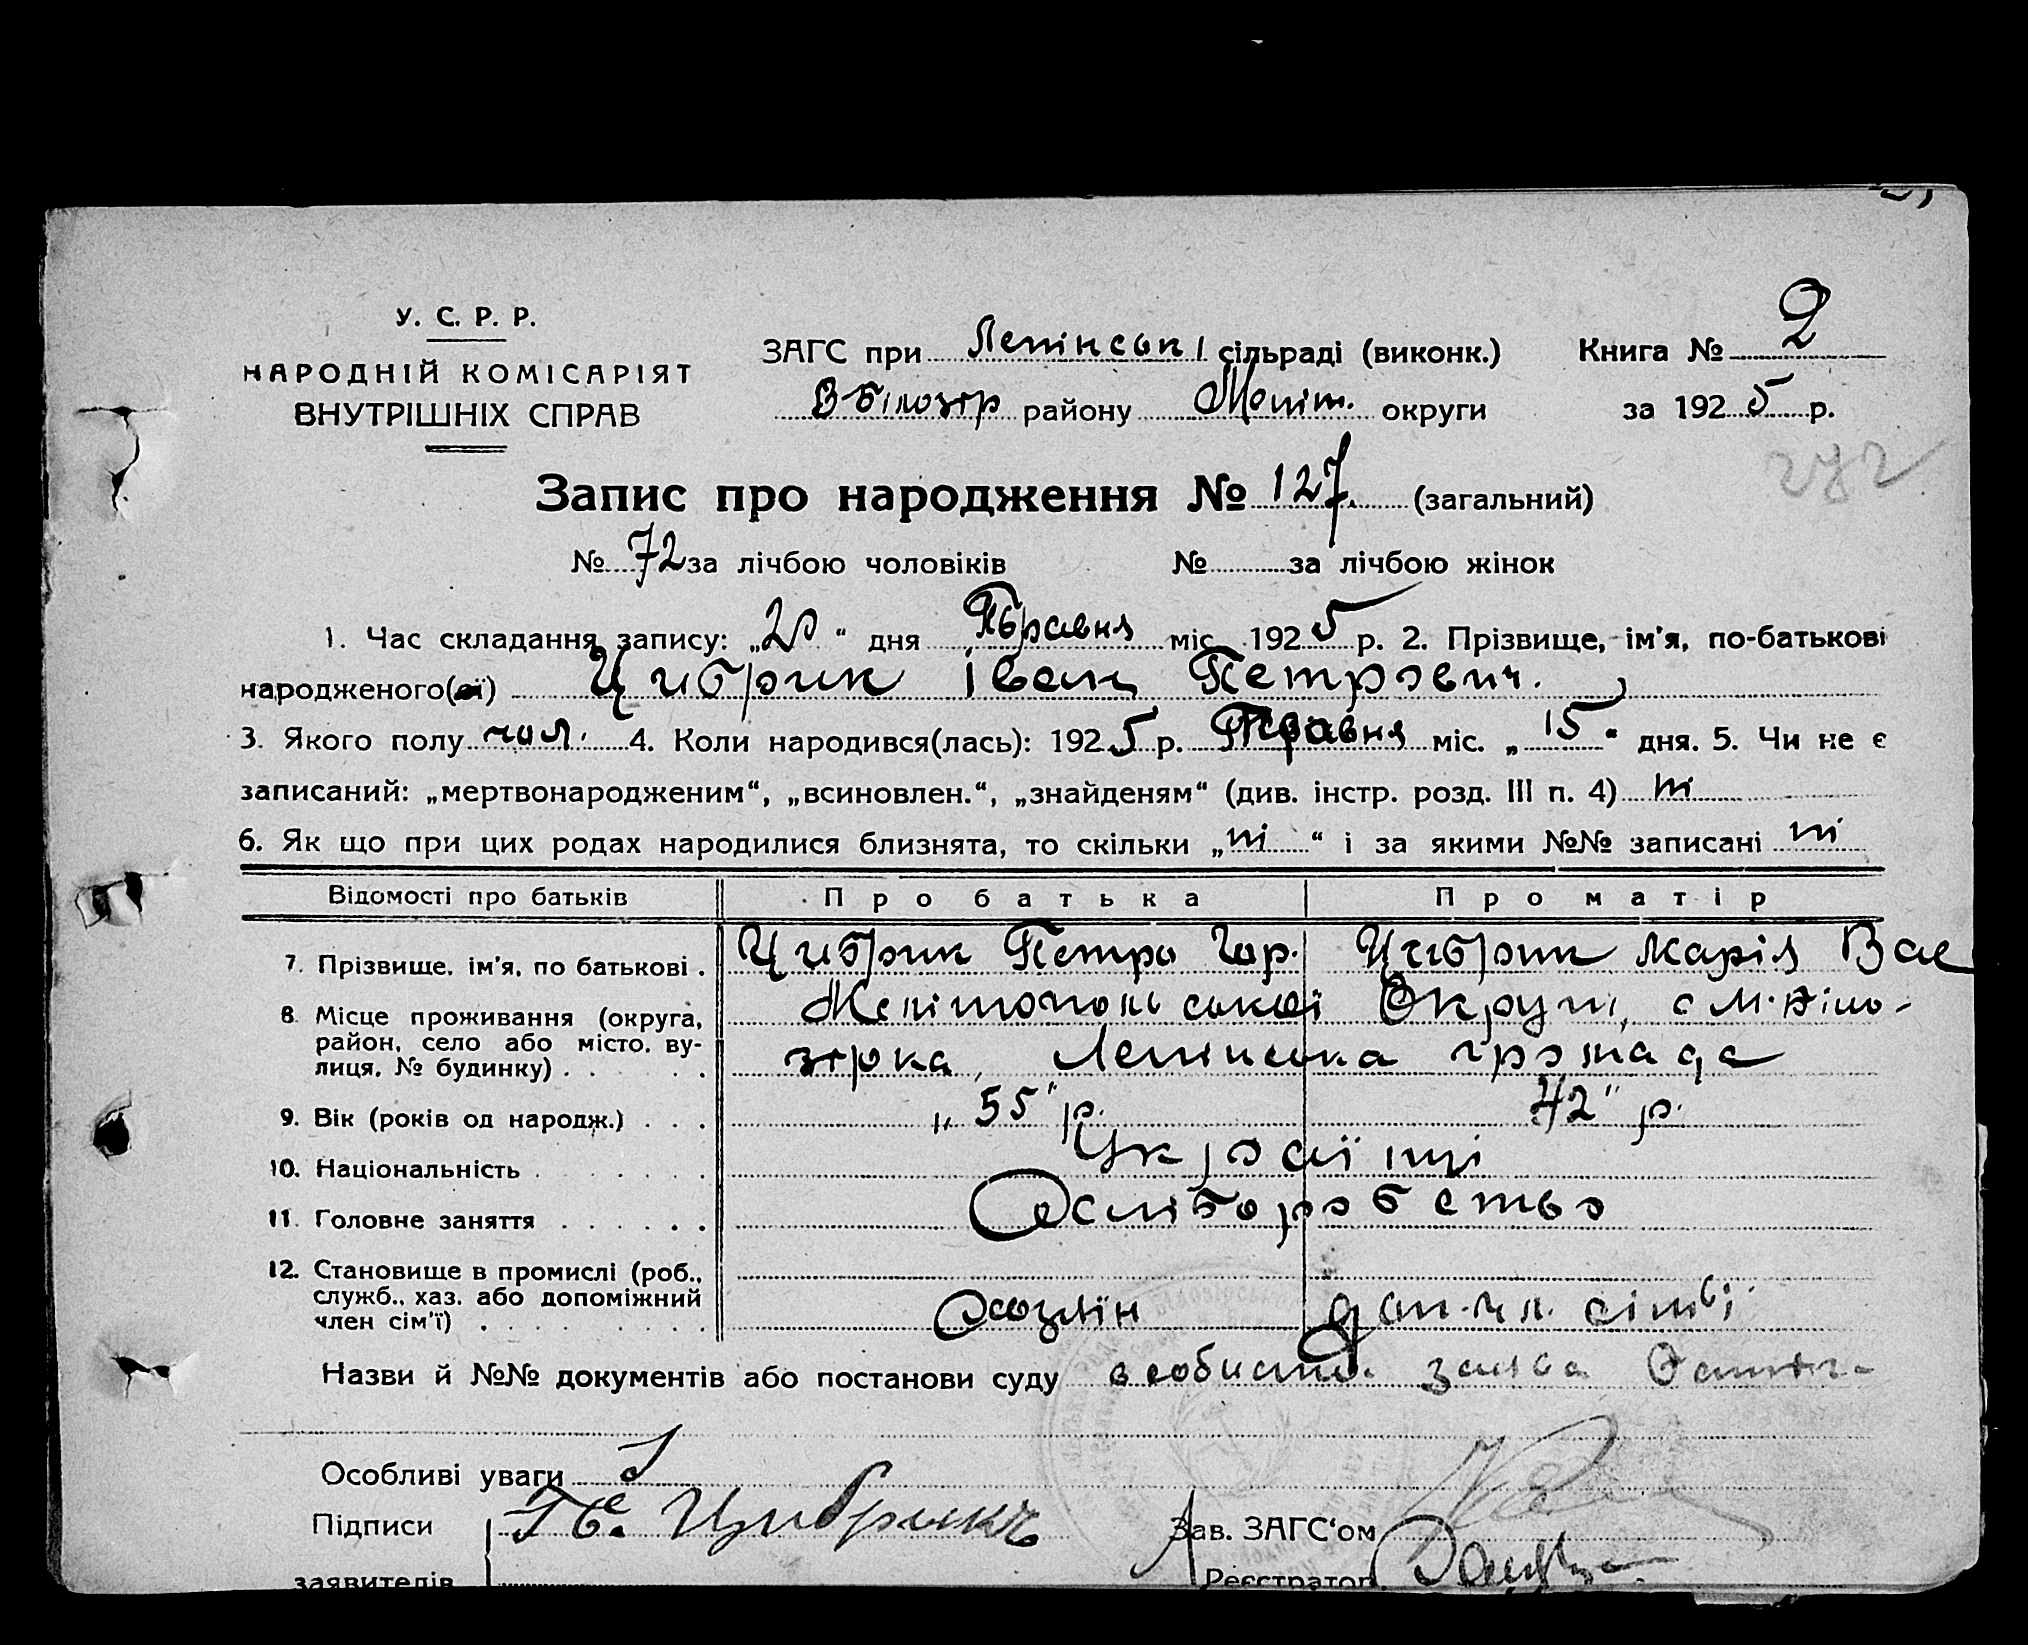 У. С. Р. Р.
НАРОДНІЙ КОМІСАРІЯТ
ВНУТРІШНІХ СПРАВ
ЗАГС при Ленінські сільраді (виконк.)
Книга № 2
В Білозір району Меліт. округи
за 1925 р.
Запис про народження № 127. (загальний)
№ 72 за лічбою чоловіків № за лічбою жінок
1. Час складання запису: „20“ дня Травня міс. 1925 р. 2. Прізвище, ім’я, по-батькові
народженого(ої) Цибрик Іван Петрович.
3. Якого полу чол. 4. Коли народився(лась): 1925 р. Травня міс. „15“ дня. 5. Чи не є
записаний: „мертвонародженим“, „всиновлен.“, „знайденям“ (див. інстр. розд. III п. 4) ні
6. Як що при цих родах народилися близнята, то скільки „ні“ і за якими №№ записані ні
Відомості про батьків Про батька Про матір
7. Прізвище, ім’я, по батькові . Цибрик Петро Гор. Цибрик Марія Вас
8. Місце проживання (округа, район, село або місто, вулиця, № будинку) Мелітопольської Округи, с М. Білозірка, Ленінська громада
9. Вік (років од народж.) . . . „55" р. 42" р.
10. Національність Українці
11. Головне заняття Хсліборобство
12. Становище в промислі (роб., служб., хаз. або допоміжний член сім’ї) Хозяїн доп. чл. сімьі
Назви й №№ документів або постанови суду особиста заява
Особливі уваги
Підписи Цибрикъ
Зав. ЗАГС‘ом
заявителів
Реєстратор